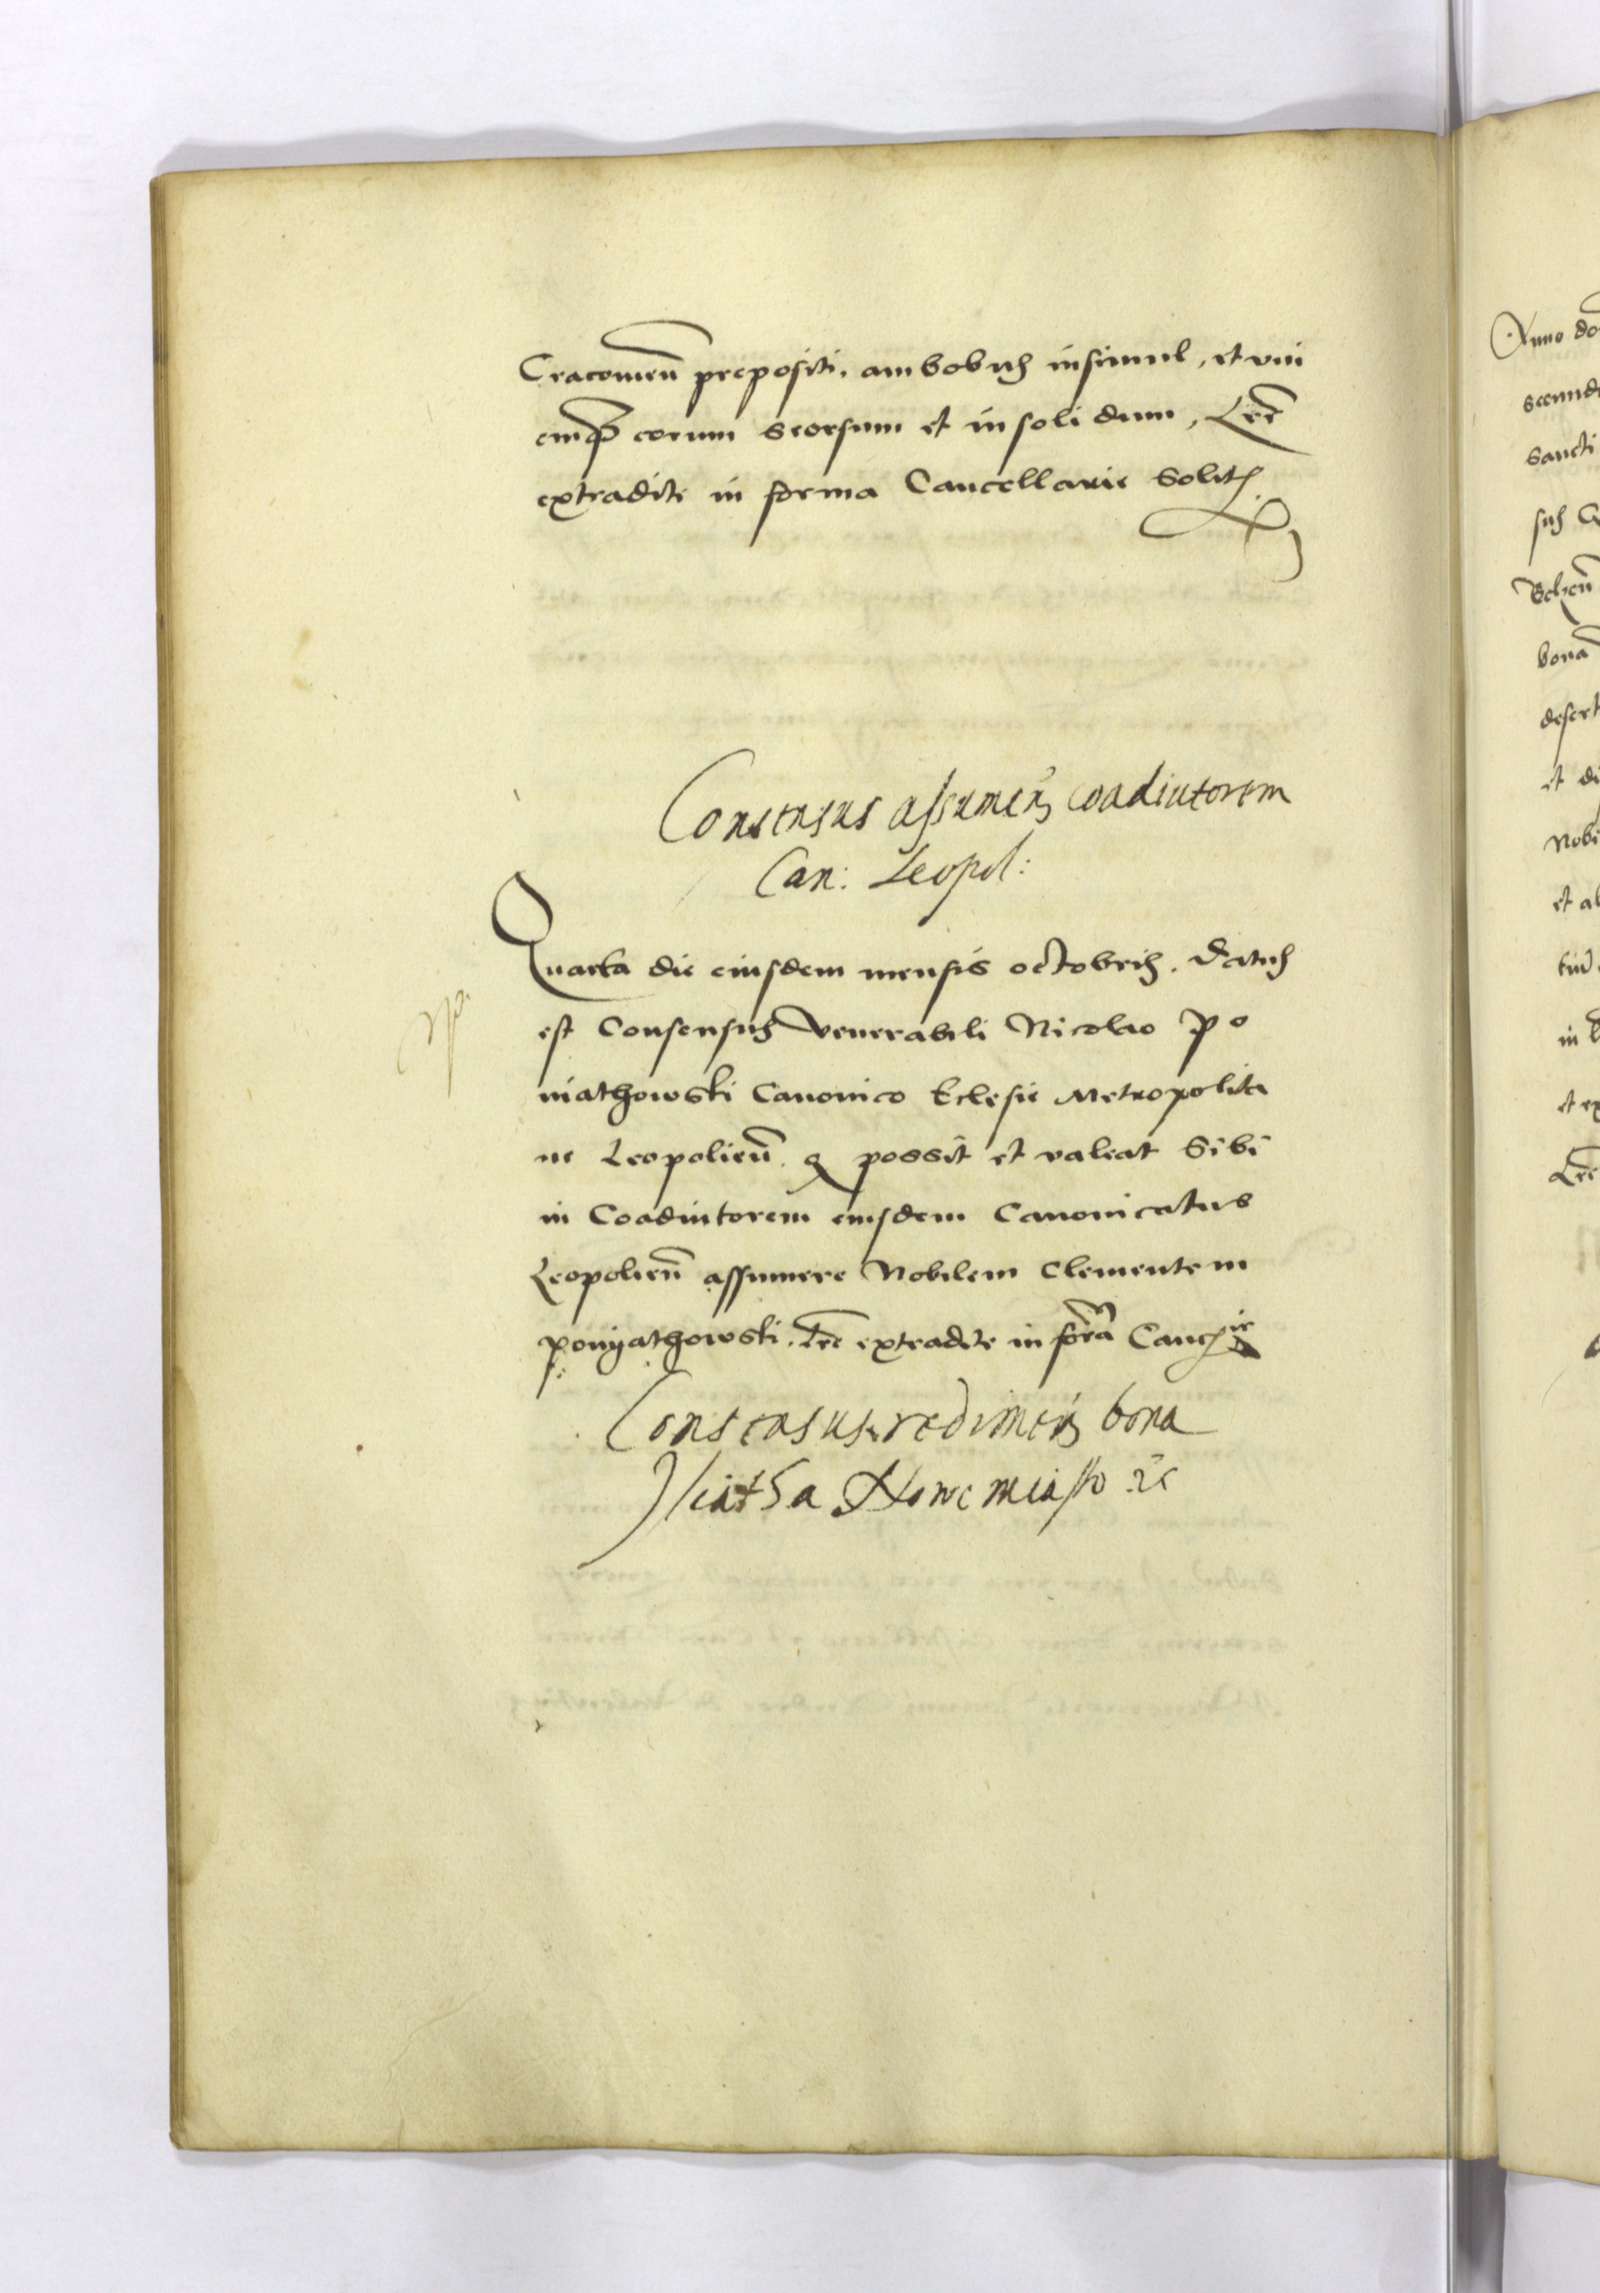 Cracouien̄ prepositi. ambobus insimul, et vni
cuiq̃ eorum seorsum et in soli dum, Lr̄e
extradite in forma Cancellarie Solite
Consensus assumen̄ coadiutorem
Can: Leopol:
Quarta die eiusdem mensis octobris. Datus
est Consensus venerabili Nicolao Po
niathowski Canonico Eclesie Metropolita
ne Leopolien̄ q possit et valeat Sibi
in Coadiutorem eiusdem Canonicatus
Leopolien̄ assumere Nobilem Clementem
Ponyathowski. Lr̄e extradite in for̄a Cancrie
Consensus redimen̄ bona
Nowe miasto
Anno do
secund
sancti
sus
bona
desert
et di
Nobi
et al
in
et ex
Lr̄e